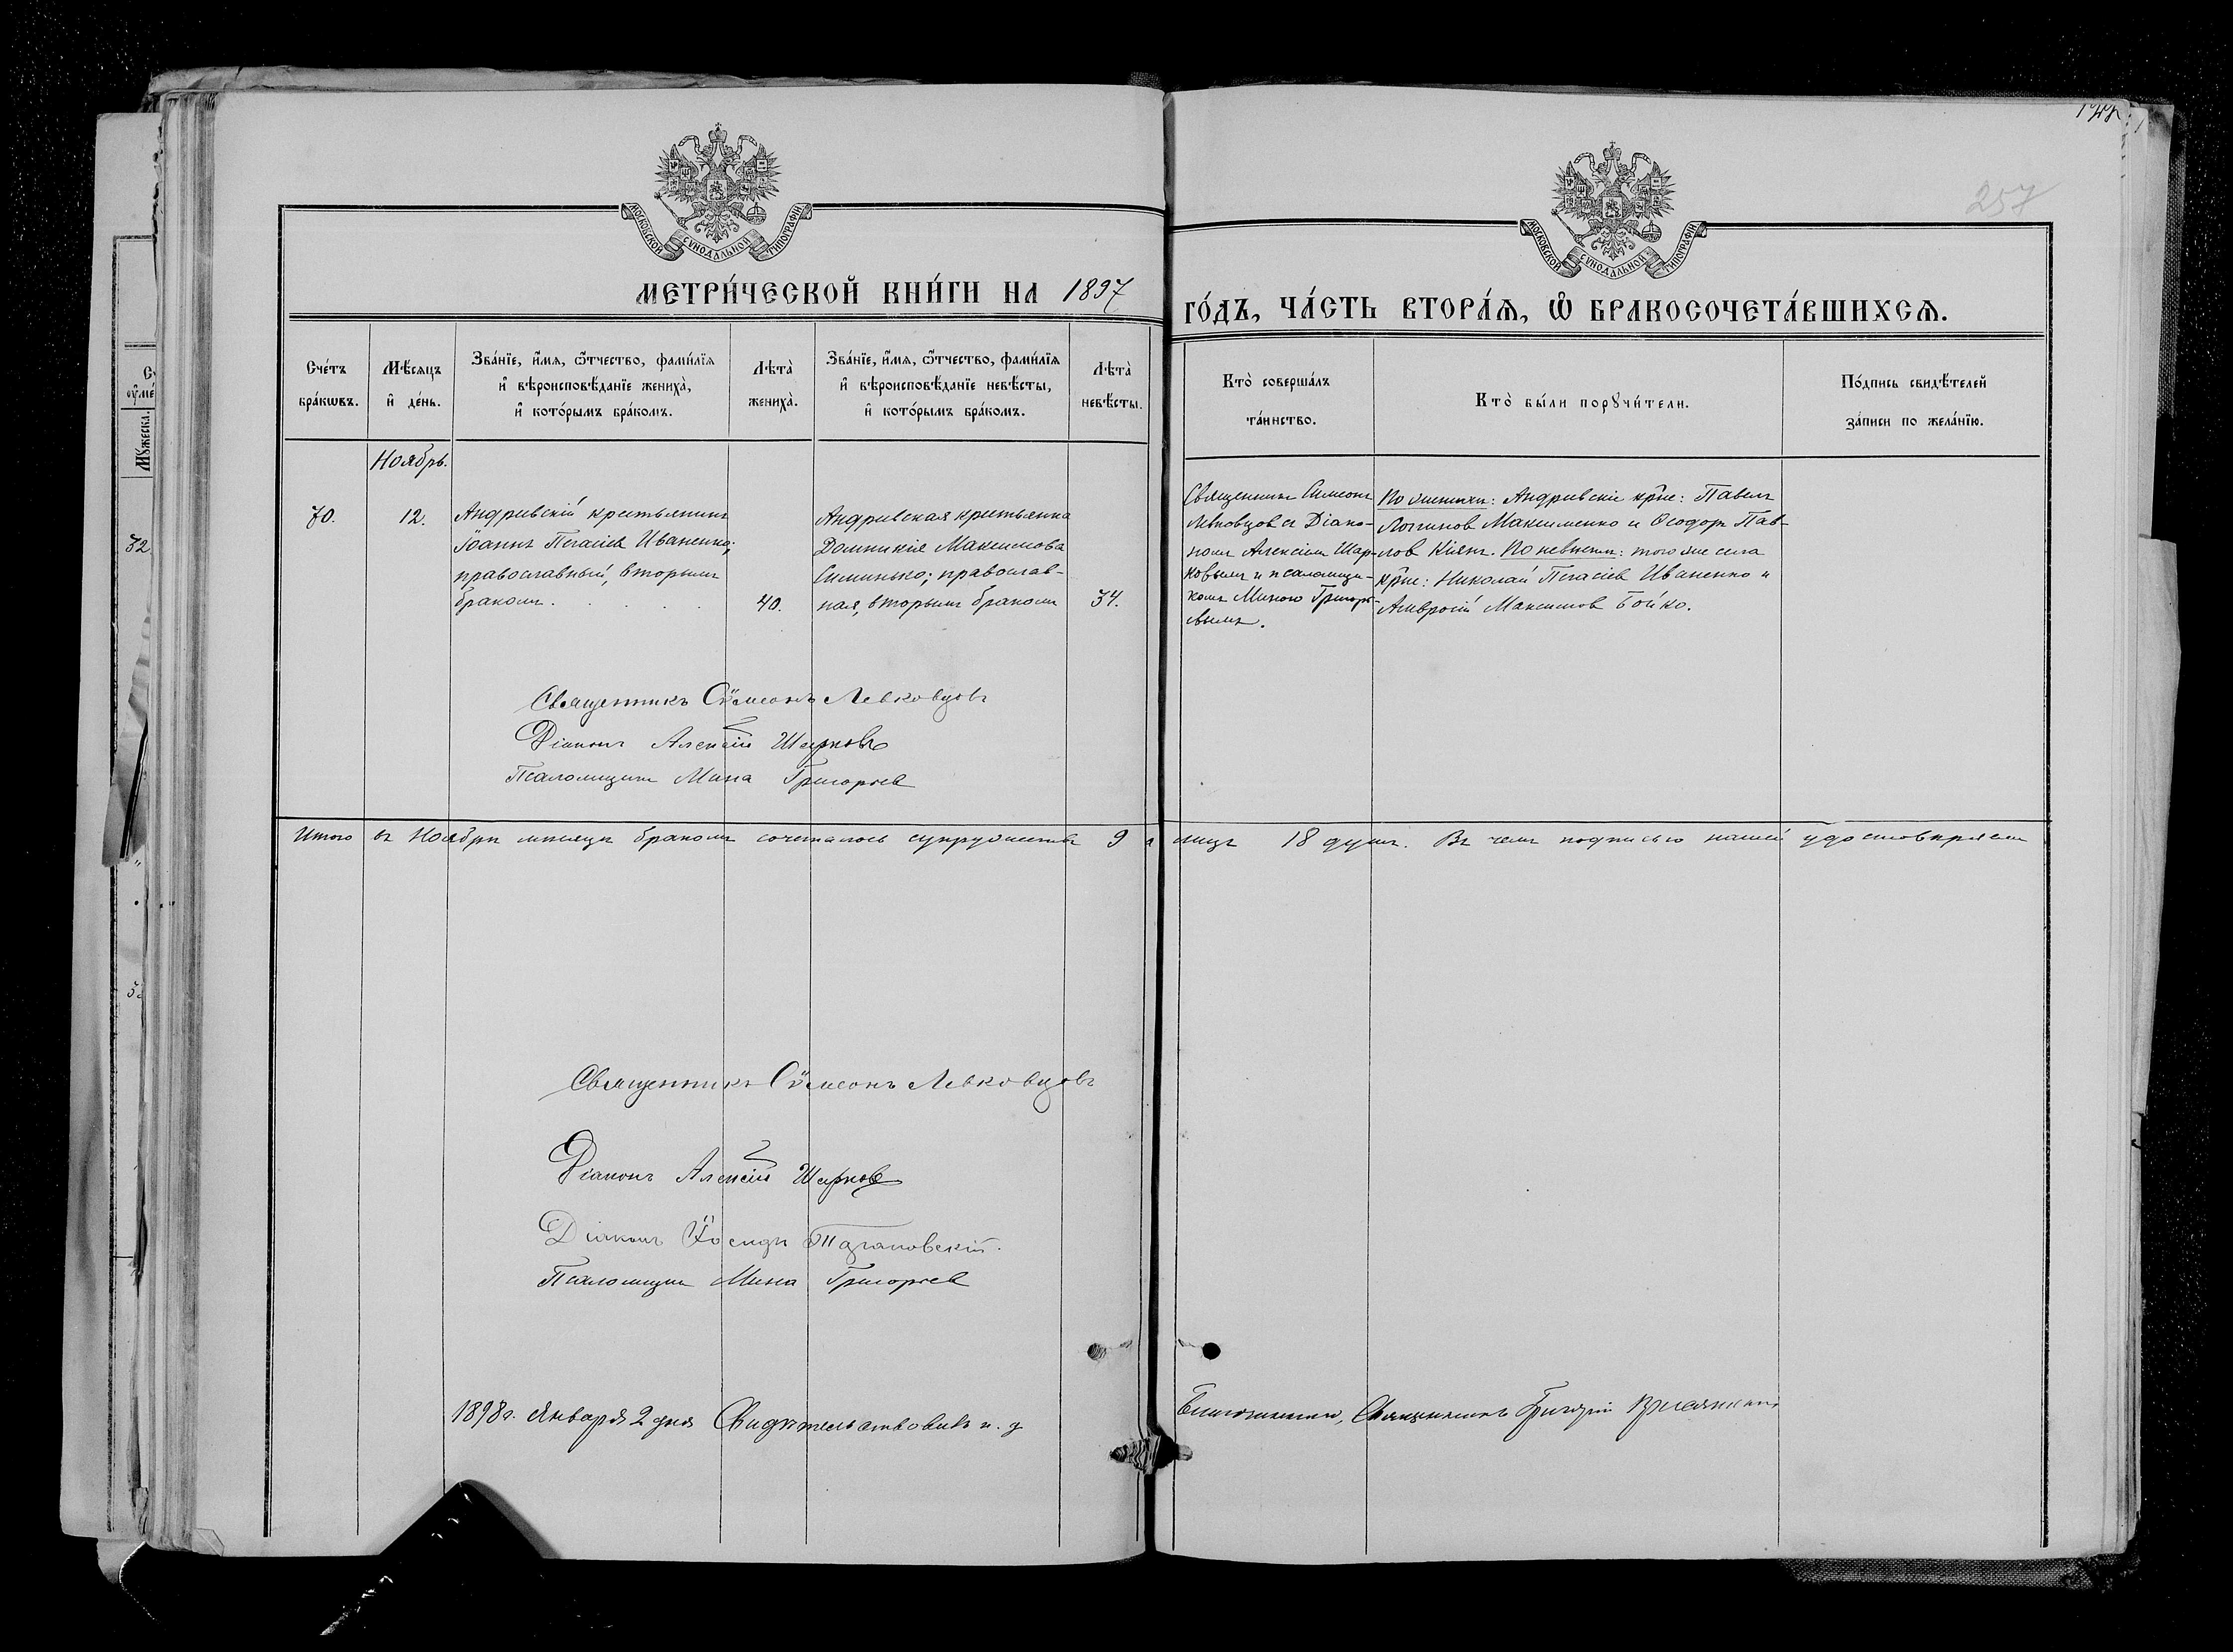 257
МОСКОВСКОЙ СѴНОДАЛЬНОЙ ТИПОГРАФІИ
МОСКОВСКОЙ СѴНОДАЛЬНОЙ ТИПОГРАФІИ
МЕТРИ́ЧЕСКОЙ КНИ́ГИ НА 1897
ГО́ДЪ, ЧА́СТЬ ВТОРА́Ѧ, Ѽ БРАКОСОЧЕТА́ВШИХСѦ.
Сче́тъ
бра́кѡвъ.
Мѣ́сяцъ
и҆ де́нь.
Зва́нїе, и҆́мѧ, ѻ҆́тчество, фами́лїѧ
и҆ вѣроисповѣ́данїе жениха̀,
и҆ кото́рымъ бра́комъ.
Лѣта̀
жениха̀.
Зва́нїе, и҆́мѧ, ѻ҆́тчество, фами́лїѧ
и҆ вѣроисповѣ́данїе невѣ́сты,
и҆ кото́рымъ бра́комъ.
Лѣта̀
невѣ́сты.
Кто̀ соверша́лъ
та́инство.
Кто̀ бы́ли порꙋчи́тели.
По́дпись свидѣ́телей
за́писи по жела́нїю.
Ноябрь.
70.
12.
Андреевскій крестьянинъ
Іоаннъ Пегасіевъ Иваненко;
православный, вторымъ
бракомъ.
40.
Андреевская крестьянка
Домникія Максимова
Симинько; православ-
ная, вторымъ бракомъ
34.
Священникъ Симеонъ
Левковцовъ съ Діако-
номъ Алексіемъ Шар-
ковымъ и псаломщи-
комъ Миною Григорь-
евымъ.
По женихѣ: Андреевскіе кр̃не: Павелъ
Логиновъ Максименко и Ѳеодоръ Пав-
ловъ Кіянъ. По невѣстѣ: того же села
кр̃не: Николай Пегасіевъ Иваненко и
Амвросій Максимовъ Бойко.
Священникъ Сѵмеонъ Левковцовъ
Діаконъ Алексій Шарковъ
Псаломщикъ Мина Григорьевъ
Итого въ Ноябрѣ мѣсяцѣ бракомъ сочеталось супружествъ 9 а лицъ 18 душъ. Въ чемъ подписью нашей удостовѣряемъ
Священникъ Сѵмеонъ Левковцовъ
Діаконъ Алексій Шарковъ
Діаконъ Іосифъ
Псаломщикъ Мина Григорьевъ
1898 г. Января 2 дня Свидѣтельствовалъ и. д. Благочиннаго, Священникъ Григорій